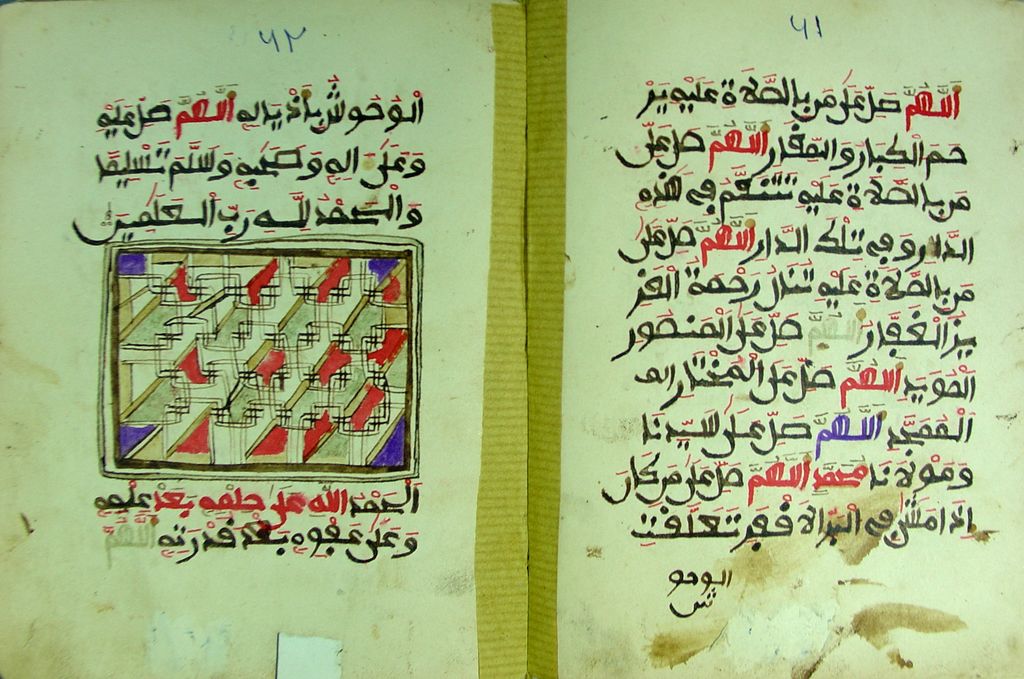 ٦١
اللهم صل على من بالصلاة عليه ير
حم الكبار والصغار اللهم صل على
من بالصلاة عليه تتنعم في هذه
الدار وفي تلك الدار اللهم صل على
من بالصلاة عليه تنال رحمة العز
يز الغفار اللهم صل على المنصور
المويد اللهم صل على المختار
الممجد اللهم صل على سيدنا
ومولانا محمد اللهم صل على من كان
اذا مشى في البر تعلقت
الوحو
ش
٦٢
الوحوش باذياله اللهم صل عليه
وعلى اله وصحبه وسلم تسليما
والحمد لله رب العلمين
الحمد الله على حلمه بعد علمه
وعلى عفوه بعد قدرته اللهم